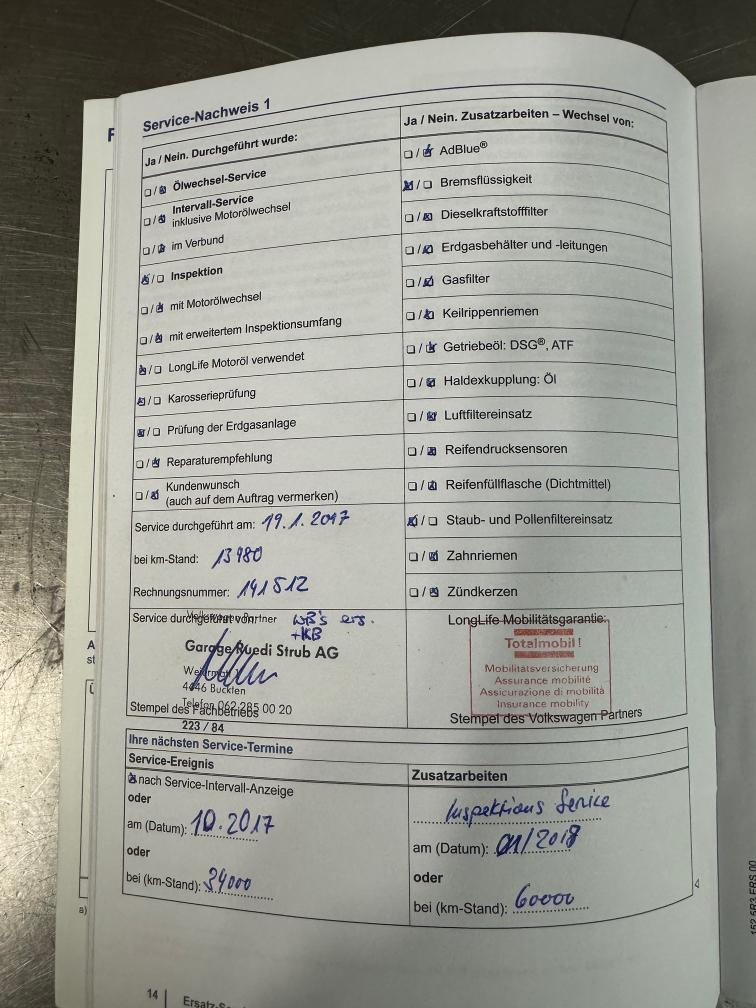 Service-Nachweis 1
Ja / Nein. Durchgeführt wurde:
Ölwechsel-Service
Intervall-Service
inklusive Motorölwechsel
im Verbund
Inspektion
mit Motorölwechsel
mit erweitertem Inspektionsumfang
LongLife Motoröl verwendet
Karosserieprüfung
Prüfung der Erdgasanlage
Reparaturempfehlung
Kundenwunsch
(auch auf dem Auftrag vermerken)
Service durchgeführt am: 19.1.2017
bei km-Stand: 13980
Rechnungsnummer: 141512
Ja / Nein. Zusatzarbeiten – Wechsel von:
AdBlue®
Bremsflüssigkeit
Dieselkraftstofffilter
Erdgasbehälter und -leitungen
Gasfilter
Keilrippenriemen
Getriebeöl: DSG®, ATF
Haldexkupplung: Öl
Luftfiltereinsatz
Reifendrucksensoren
Reifenfüllflasche (Dichtmittel)
Staub- und Pollenfiltereinsatz
Zahnriemen
Zündkerzen
Service durchgeführt von:
WB's ers.
+KB
Garage Ruedi Strub AG
4446 Buckten
Telefon 062 285 00 20
Stempel des Fachbetriebs
223 / 84
LongLife Mobilitätsgarantie:
Totalmobil!
Mobilitätsversicherung
Assurance mobilité
Assicurazione di mobilità
Insurance mobility
Stempel des Volkswagen Partners
Ihre nächsten Service-Termine
Service-Ereignis
nach Service-Intervall-Anzeige
oder
am (Datum): 10.2017
oder
bei (km-Stand): 34000
Zusatzarbeiten
Inspektions Service
am (Datum): 01/2018
oder
bei (km-Stand): 60000
a)
14